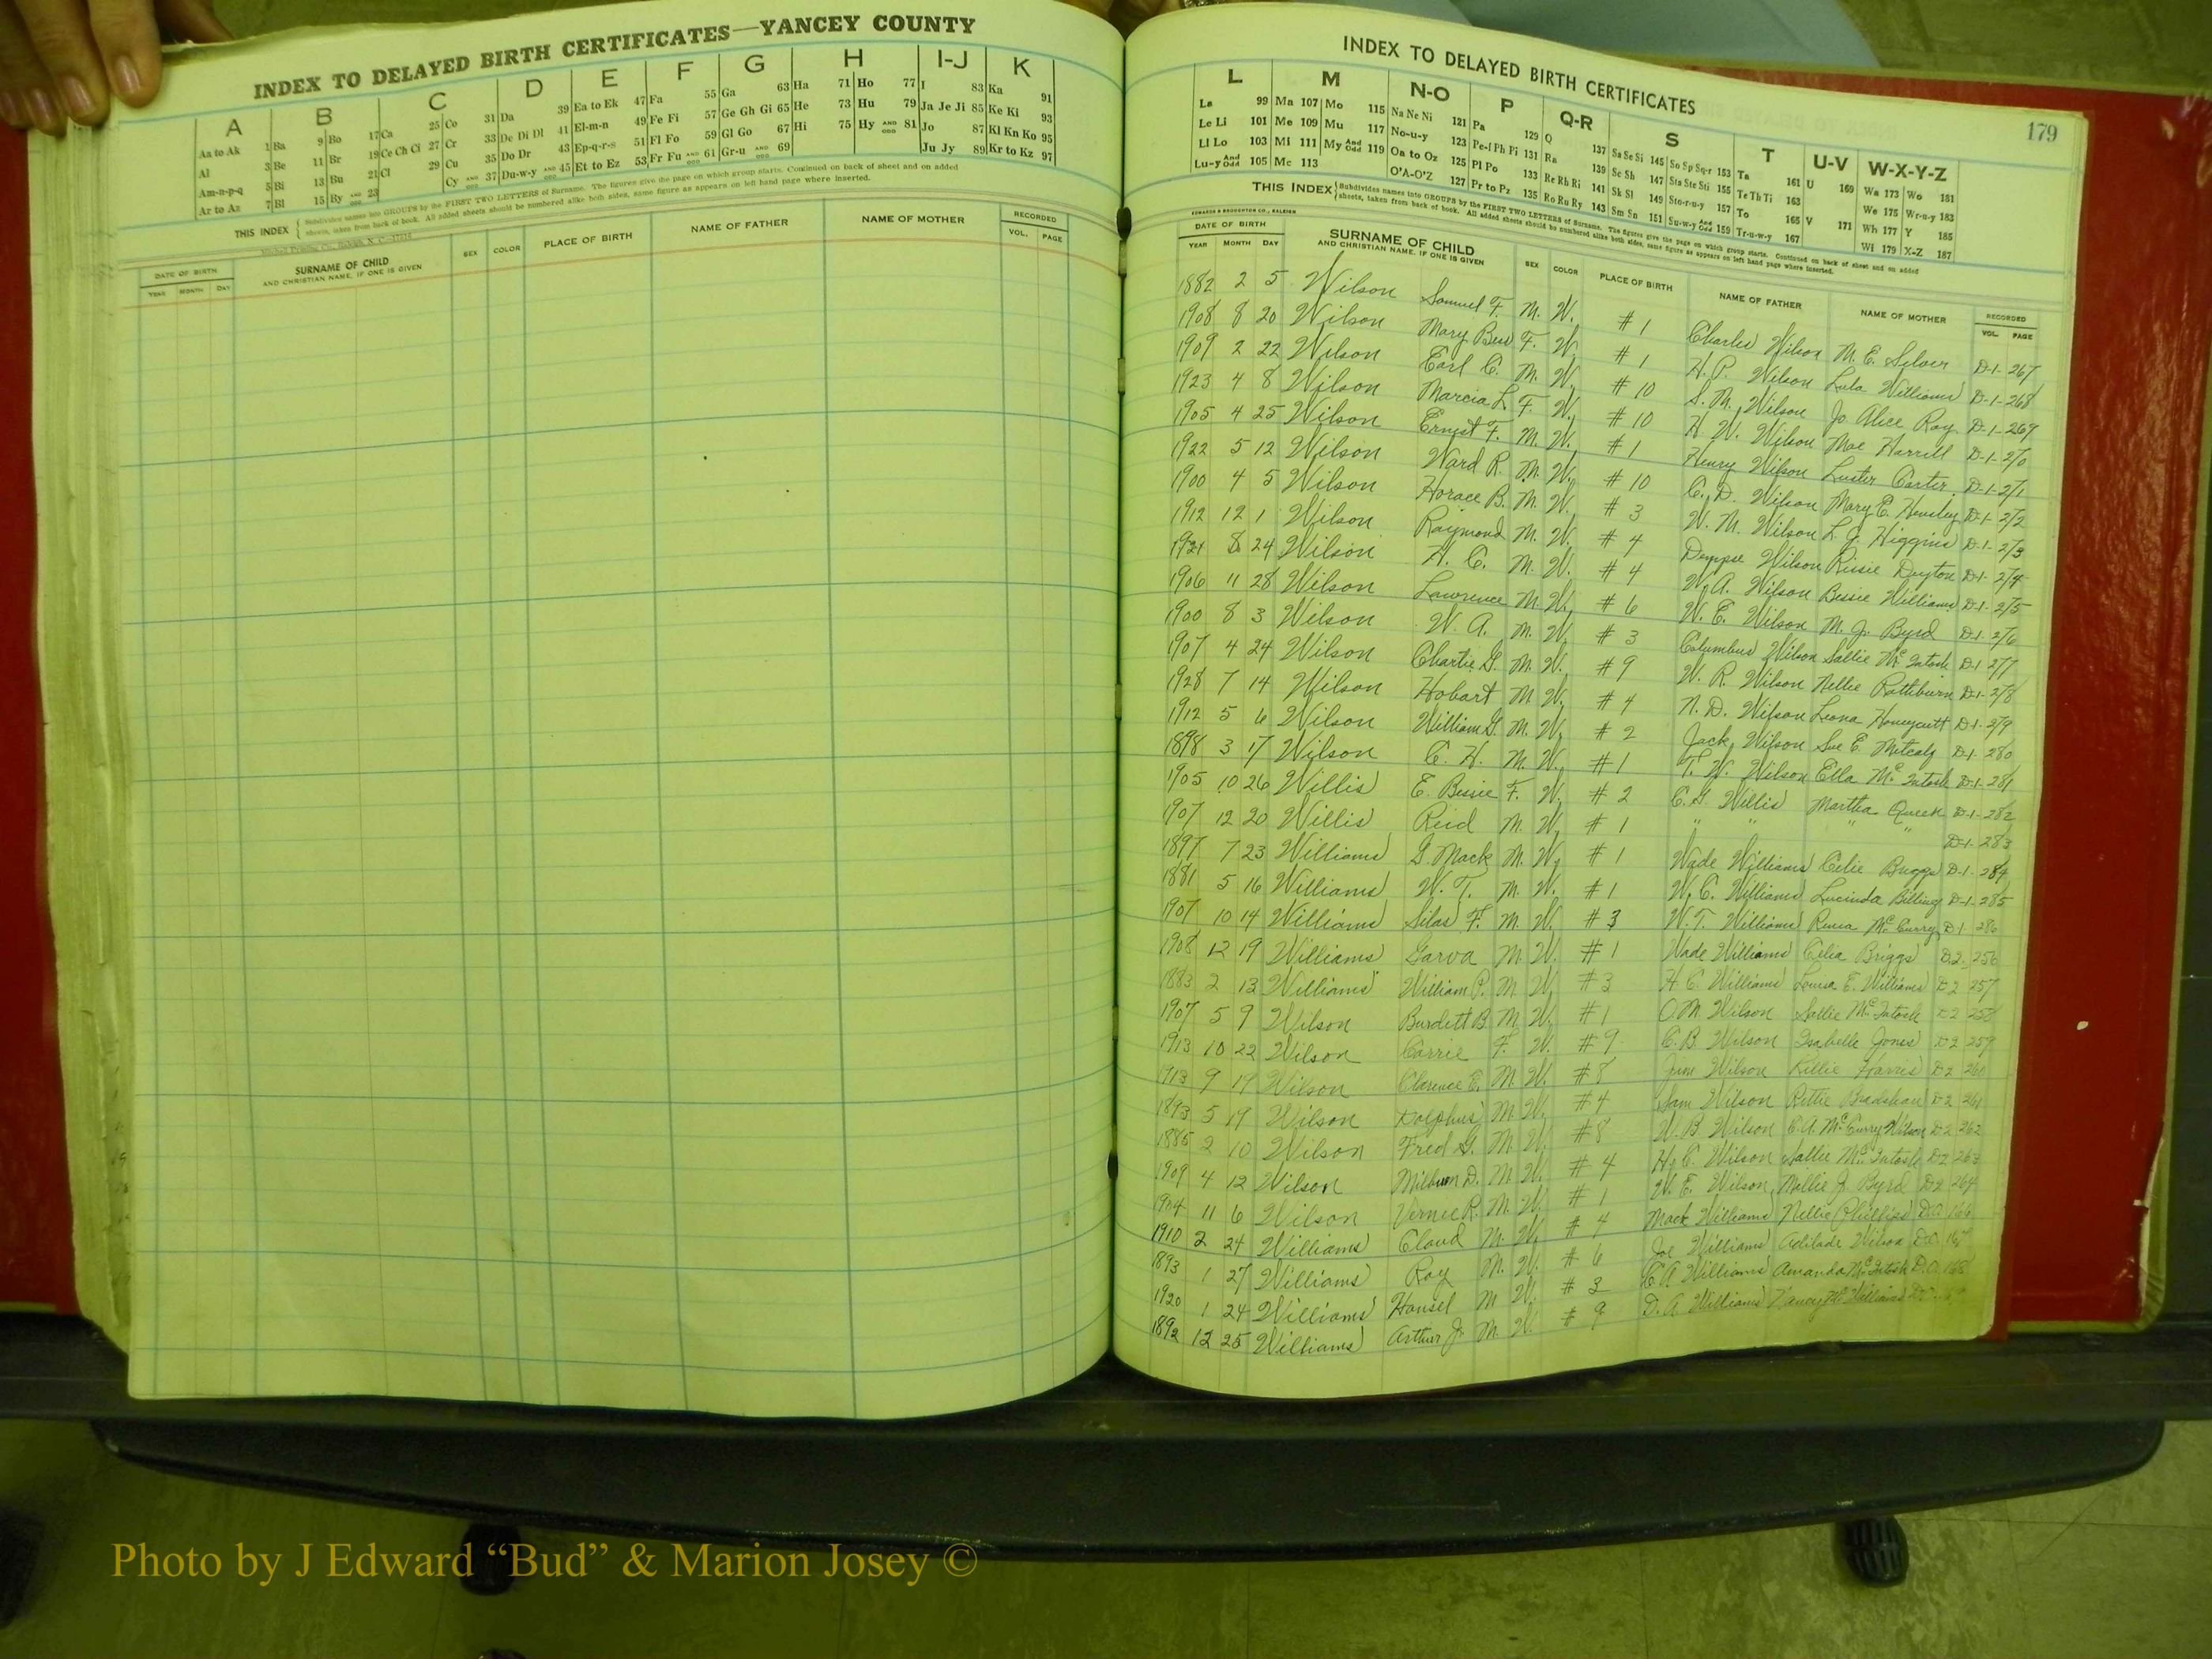 INDEX TO DELAYED BIRTH CERTIFICATES—YANCEY COUNTY
A B C D E F G H I-J K
Aa to Ak 1 Ba 9 Bo 17 Ca 25 Co 31 Da 39 Ea to Ek 47 Fa 55 Ga 63 Ha 71 Ho 77 I 83 Ka 91
Al 3 Be 11 Br 19 Ce Ch Ci 27 Cr 33 De Di Dl 41 El-m-n 49 Fe Fi 57 Ge Gh Gi 65 He 73 Hu 79 Ja Je Ji 85 Ke Ki 93
Am-n-p-q 5 Bi 13 Bu 21 Cl 29 Cu 35 Do Dr 43 Ep-q-r-s 51 Fl Fo 59 Gl Go 67 Hi 75 Hy AND ODD 81 Jo 87 Kl Kn Ko 95
Ar to Az 7 Bl 15 By AND ODD 23 Cy AND ODD 37 Du-w-y AND ODD 45 Et to Ez 53 Fr Fu AND ODD 61 Gr-u AND ODD 69 Ju Jy 89 Kr to Kz 97
THIS INDEX { Subdivides names into GROUPS by the FIRST TWO LETTERS of Surname. The figures give the page on which group starts. Continued on back of sheet and on added
sheets, taken from back of book. All added sheets should be numbered alike both sides, same figure as appears on left hand page where inserted.
DATE OF BIRTH SURNAME OF CHILD SEX COLOR PLACE OF BIRTH NAME OF FATHER NAME OF MOTHER RECORDED
YEAR MONTH DAY AND CHRISTIAN NAME, IF ONE IS GIVEN VOL. PAGE
INDEX TO DELAYED BIRTH CERTIFICATES
179
L M N-O P Q-R S T U-V W-X-Y-Z
La 99 Ma 107 Mo 115 Na Ne Ni 121 Pa 129 Q 137 Sa Se Si 145 So Sp Sq-r 153 Ta 161 U 169 Wa 173 Wo 181
Le Li 101 Me 109 Mu 117 No-u-y 123 Pe-f Ph Pi 131 Ra 139 Sc Sh 147 Sta Ste Sti 155 Te Th Ti 163 We 175 Wr-u-y 183
Ll Lo 103 Mi 111 My And Odd 119 Oa to Oz 125 Pl Po 133 Re Rh Ri 141 Sk Sl 149 Sto-r-u-y 157 To 165 V 171 Wh 177 Y 185
Lu-y And Odd 105 Mc 113 O'A-O'Z 127 Pr to Pz 135 Ro Ru Ry 143 Sm Sn 151 Su-w-y And Odd 159 Tr-u-w-y 167 Wi 179 X-Z 187
THIS INDEX { Subdivides names into GROUPS by the FIRST TWO LETTERS of Surname. The figures give the page on which group starts. Continued on back of sheet and on added
sheets, taken from back of book. All added sheets should be numbered alike both sides, same figure as appears on left hand page where inserted.
EDWARDS & BROUGHTON CO., RALEIGH
DATE OF BIRTH SURNAME OF CHILD SEX COLOR PLACE OF BIRTH NAME OF FATHER NAME OF MOTHER RECORDED
YEAR MONTH DAY AND CHRISTIAN NAME, IF ONE IS GIVEN VOL. PAGE
1882 2 5 Wilson Samuel F. M. W. #1 Charles Wilson M. E. Silver D-1-267
1908 8 20 Wilson Mary Bess F. W. #1 H. P. Wilson Lula Williams D-1-268
1909 2 22 Wilson Earl C. M. W. #10 S. M. Wilson Jo Alice Ray D-1-269
1923 4 8 Wilson Marcia L. F. W. #10 H. W. Wilson Mae Harrill D-1-270
1905 4 25 Wilson Ernest F. M. W. #1 Henry Wilson Luster Carter D-1-271
1922 5 12 Wilson Ward R. M. W. #10 C. D. Wilson Mary E. Hensley D-1-272
1900 4 5 Wilson Horace B. M. W. #3 W. M. Wilson L. J. Higgins D-1-273
1912 12 1 Wilson Raymond M. W. #4 Wilson Rissie Deyton D-1-274
1921 8 24 Wilson H. C. M. W. #4 W. A. Wilson Bessie Williams D-1-275
1906 11 28 Wilson Lawrence M. W. #6 W. E. Wilson M. J. Byrd D-1-276
1900 8 3 Wilson W. A. M. W. #3 Columbus Wilson Sallie McIntosh D-1-277
1907 4 24 Wilson Charlie G. M. W. #9 W. R. Wilson Nellie Rathburn D-1-278
1928 7 14 Wilson Hobart M. W. #4 N. D. Wilson Leona Honeycutt D-1-279
1912 5 6 Wilson William G. M. W. #2 Jack Wilson Sue E. Metcalf D-1-280
1898 3 17 Wilson C. H. M. W. #1 T. W. Wilson Ella McIntosh D-1-281
1905 10 26 Willis E. Bessie F. W. #2 C. G. Willis Martha Queen D-1-282
1907 12 20 Willis Reid M. W. #1 " " " " D-1-283
1897 7 23 Williams G. Mack M. W. #1 Wade Williams Celie Buggs D-1-284
1881 5 16 Williams W. T. M. W. #1 W. C. Williams Lucinda Billing D-1-285
1907 10 14 Williams Silas F. M. W. #3 W. T. Williams McCurry D-1 286
1908 12 19 Williams Garva M. W. #1 Wade Williams Celia Briggs D2- 256
1883 2 13 Williams William P. M. W. #3 H. C. Williams Louisa E. Williams D2 257
1907 5 9 Wilson Burdett B. M. W. #1 O. M. Wilson Sallie McIntosh D2 258
1913 10 22 Wilson Carrie F. W. #9 C. B. Wilson Isabelle Jones D2 259
1913 9 19 Wilson Clarence E. M. W. #8 June Wilson Harris D2 260
1893 5 19 Wilson Dolphus M. W. #4 Sam Wilson Bradshaw D2 261
1885 2 10 Wilson Fred G. M. W. #8 W. B. Wilson E. A. McCurry Wilson D2 262
1909 4 12 Wilson Milburn D. M. W. #4 H. C. Wilson Sallie McIntosh D2 263
1904 11 6 Wilson Vernie R. M. W. #1 W. E. Wilson Mollie J. Byrd D2 264
1910 2 24 Williams Claud M. W. #4 Mack Williams Nellie Phillips 166
1893 1 27 Williams Roy M. W. #6 Joe Williams Adilade Wilson 167
1920 1 24 Williams Hansel M W. #3 C. A. Williams Amanda McIntosh 168
1892 12 25 Williams Arthur J. M. W. #9 D. A. Williams Nancy
Photo by J Edward “Bud” & Marion Josey ©